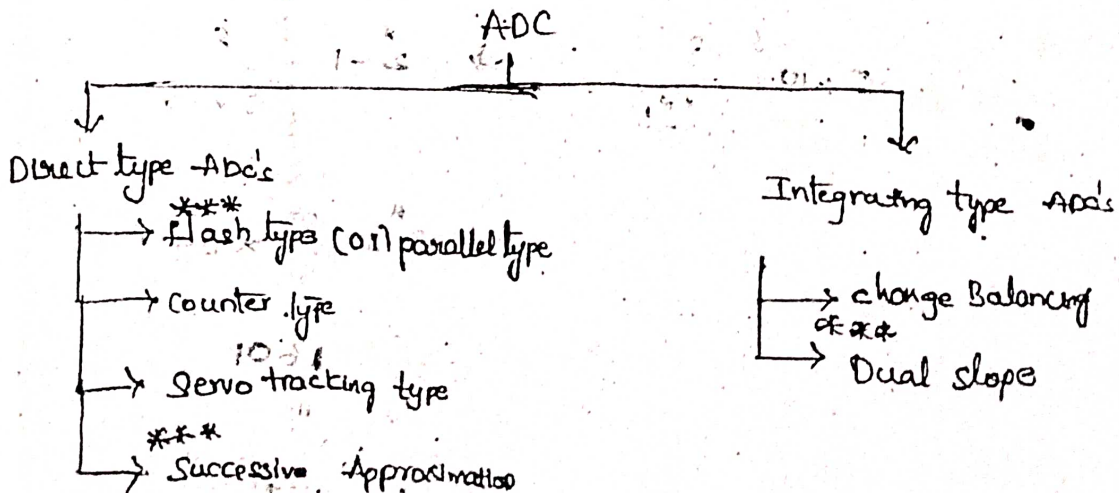 ADC
Direct type ADC's
***
Flash type (or) parallel type
counter type
Servo tracking type
***
Successive Approximation
Integrating type ADC's
change Balancing
***
Dual slope